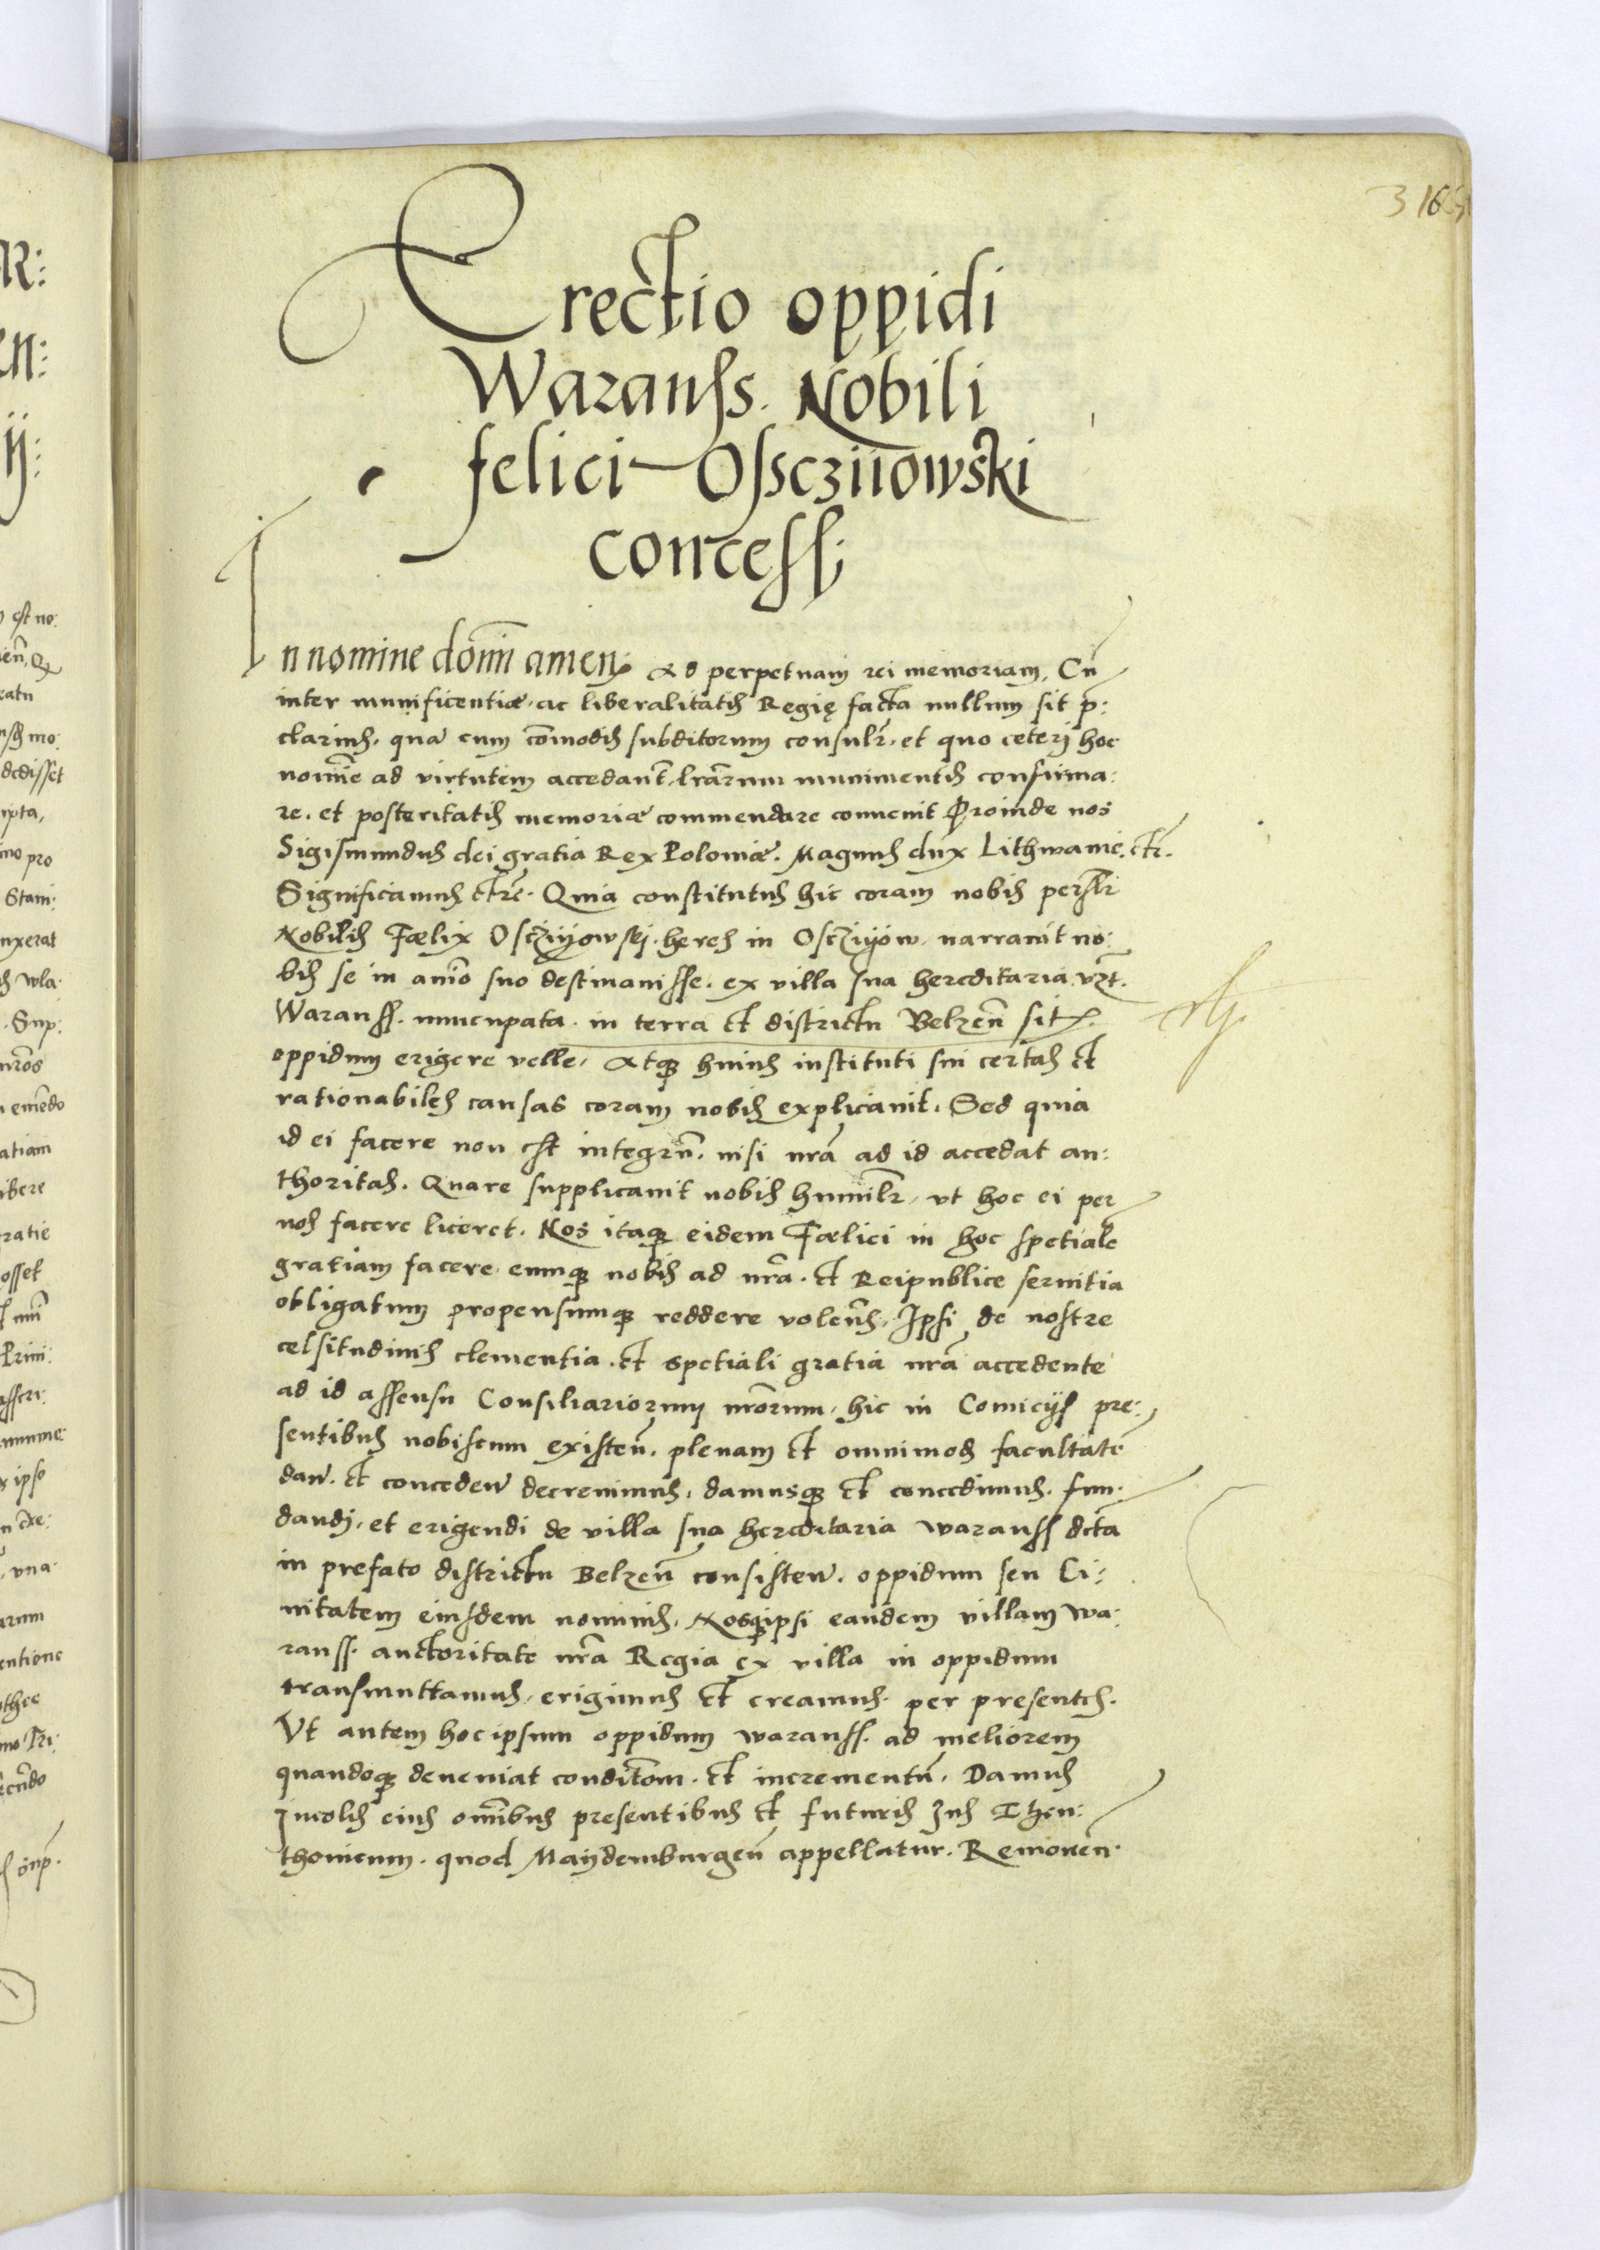 316
Erectio oppidi
Waranss. Nobili
felici Ossczuowski
concess;
In nomine domi amen. Ad perpetuam rei memoriam, Cu
inter munificentiæ. ac liberalitatis Regię facta nullum sit p̄:
clarius. qua cum comodis subditorum consulr. et quo ceteri hoc
nomine ad virtutem accedant. lrarum munimentis confirma:
re. et posteritatis memoriæ commendare convenit Proinde nos
Sigismundus dei gratia Rex Poloniæ. Magnus dux Lithwanie. etc.
Significamus etc. Quia constitutus hic coram nobis perslr
Nobilis Fælix Oscziyowskj. heres in Oscziyow. narravit no:
bis se in animo suo destinavisse. ex villa sua hereditaria vzt.
Waranss. nuncupata. in terra et districtu Belzen sit.
oppidum erigere velle. Atque huius instituti sui certas et
rationabiles causas coram nobis explicavit. Sed quia
id ei facere non est integru. nisi nra ad id accedat au:
thoritas. Quare supplicavit nobis humilr. ut hoc ei per
nos facere liceret. Nos itaque eidem Fælici in hoc spetiale
gratiam facere eumque nobis ad nra. et Reipublice servitia
obligatum propensumque reddere volens. Ipsi de nostre
celsitudinis clementia. et spetiali gratia nra accedente
ad id assensu Consiliariorum nrorum. hic in Comicys pre:
sentibus nobiscum existen. plenam et omnimod facultate
dan. et conceden decrevimus. damusque et concedimus. fun:
dandj. et erigendi de villa sua hereditaria waranss dicta
in prefato districtu Belzen consisten. oppidum seu Ci:
vitatem eiusdem nominis. Nosque ipsi eandem villam wa:
ranss. auctoritate nra Regia ex villa in oppidum
transmuttamus. erigimus et creamus. per presentes.
Ut autem hoc ipsum oppidum waranss. ad meliorem
quandoque deveniat conditom. et incrementu. Damus
Incolis eius omibus presentibus et futuris Jus Theu:
thonicum. quod Maydemburgen appellatur. Removen.